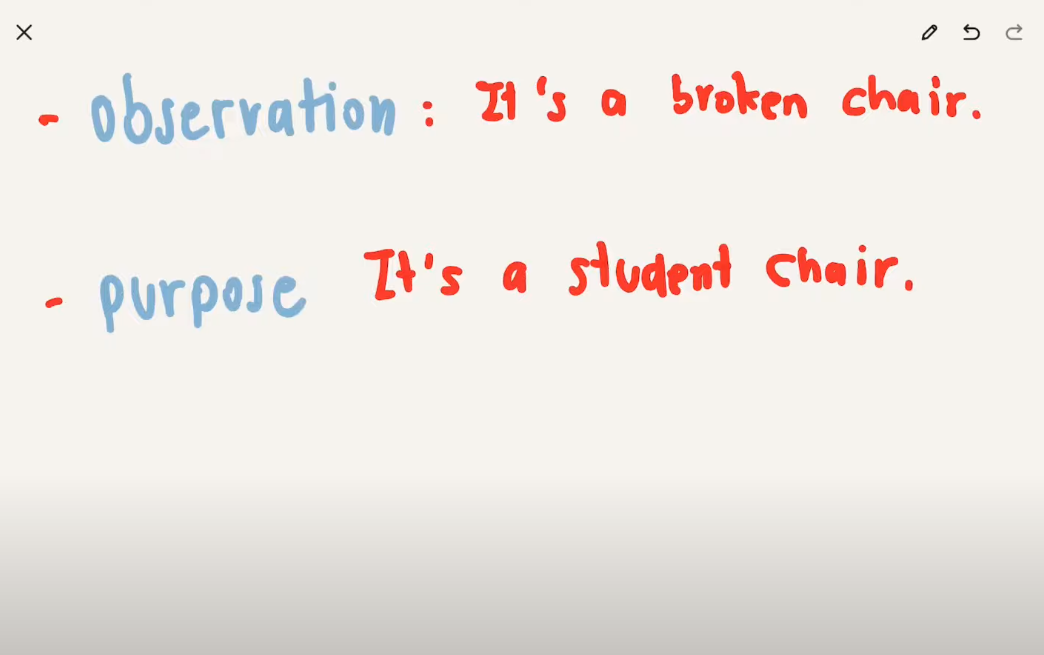 - observation : It's a broken chair.
- purpose It's a student chair.